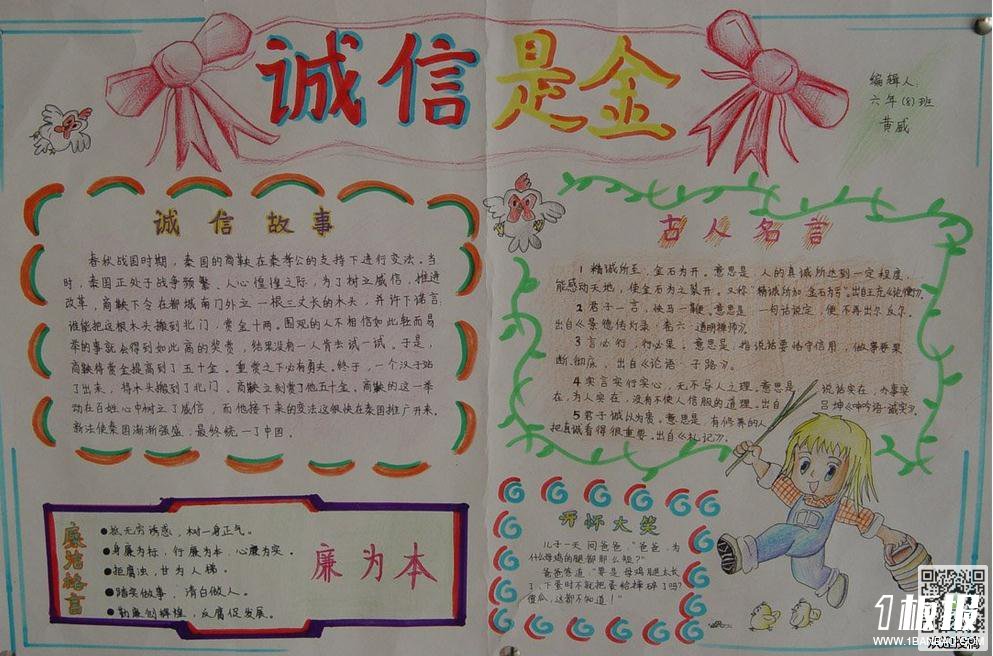 诚信是金
编辑人:
六年(8)班
黄威
诚信故事
春秋战国时期,秦国的商鞅在秦孝公的支持下进行变法。当
时,秦国正处于战争频繁、人心惶惶之际,为了树立威信,推进
改革,商鞅下令在都城南门外立一根三丈长的木头,并许下诺言,
谁能把这根木头搬到北门,赏金十两。围观的人不相信如此轻而易
举的事就会得到如此高的奖赏,结果没有一人肯出试一试。于是,
商鞅将赏金提高到了五十金。重赏之下必有勇夫。终于,一个汉子站
了出来,将木头搬到了北门,商鞅立刻赏了他五十金。商鞅的这一举
动在百姓心中树立了威信,而他接下来的变法这很快在秦国推广开来。
新法使秦国渐渐强盛,最终统一了中国。
古人名言
1 精诚所至,金石为开。意思是,人的真诚所达到一定程度,
能感动天地,使金石为之裂开。又称"精诚所加,金石为亏"。出自王充《论衡》。
2 君子一言,快马一鞭。意思是,一句话说定,便不再出尔反尔。
出自《景德传灯录·卷六·道明禅师》。
3 言必行,行必果。意思是,指说话要恪守信用,做事要果
断、彻底,出自《论语·子路》。
4 实言实行实心,无不孚人之理。意思是,说话实在,办事实
在,为人实在,没有不使人信服的道理。出自吕坤《呻吟语·诚实》。
5 君子诚以为贵。意思是,有修养的人
把真诚看得很重要。出自《礼记》。
廉洁格言
●拒腐蚀,甘为人梯。
●身廉为标,行廉为本,心廉为实。
●踏实做事,清白做人。
●勤廉创辉煌,反腐促发展。
廉为本
开怀大笑
儿子一天问爸爸,"爸爸,为
什么母鸡的腿都那么短?"
爸爸答道:"要是母鸡腿太长
了,下蛋时不就把蛋给摔碎了吗?
傻瓜,这都不知道!"
1板报
WWW.1BANBAO.COM
欢迎投稿